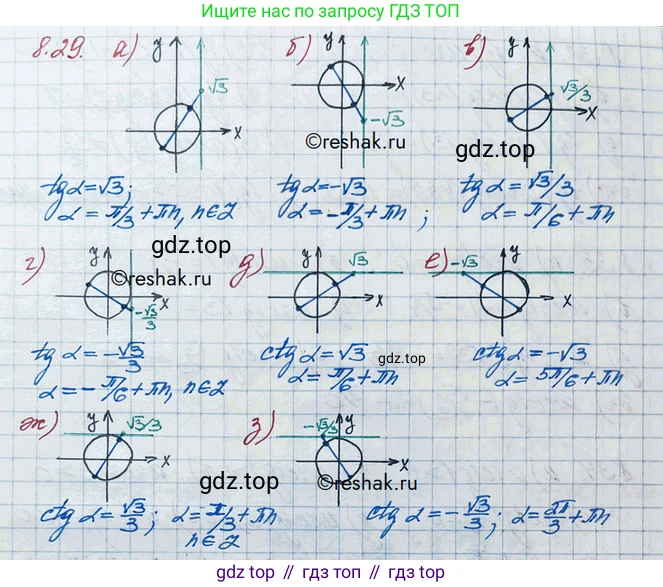 Ищите нас по запросу ГДЗ ТОП
8.29. а) y √3 x
б) y x -√3
в) √3/3 x
©reshak.ru
gdz.top
tgα=√3;
α=π/3+πn, n∈Z
tgα=-√3
α=-π/3+πn;
tgα=√3/3
α=π/6+πn
gdz.top
г) y x -√3/3
©reshak.ru
д) √3
е) -√3
tgα=-√3/3
α=-π/6+πn, n∈Z
ctgα=√3
α=π/6+πn
gdz.top
ctgα=-√3
α=5π/6+πn
ж) y √3/3 x
з) -√3/3 y x
©reshak.ru
ctgα=√3/3; α=π/3+πn
n∈Z
ctgα=-√3/3; α=2π/3+πn
gdz.top // гдз топ // gdz.top // гдз.топ